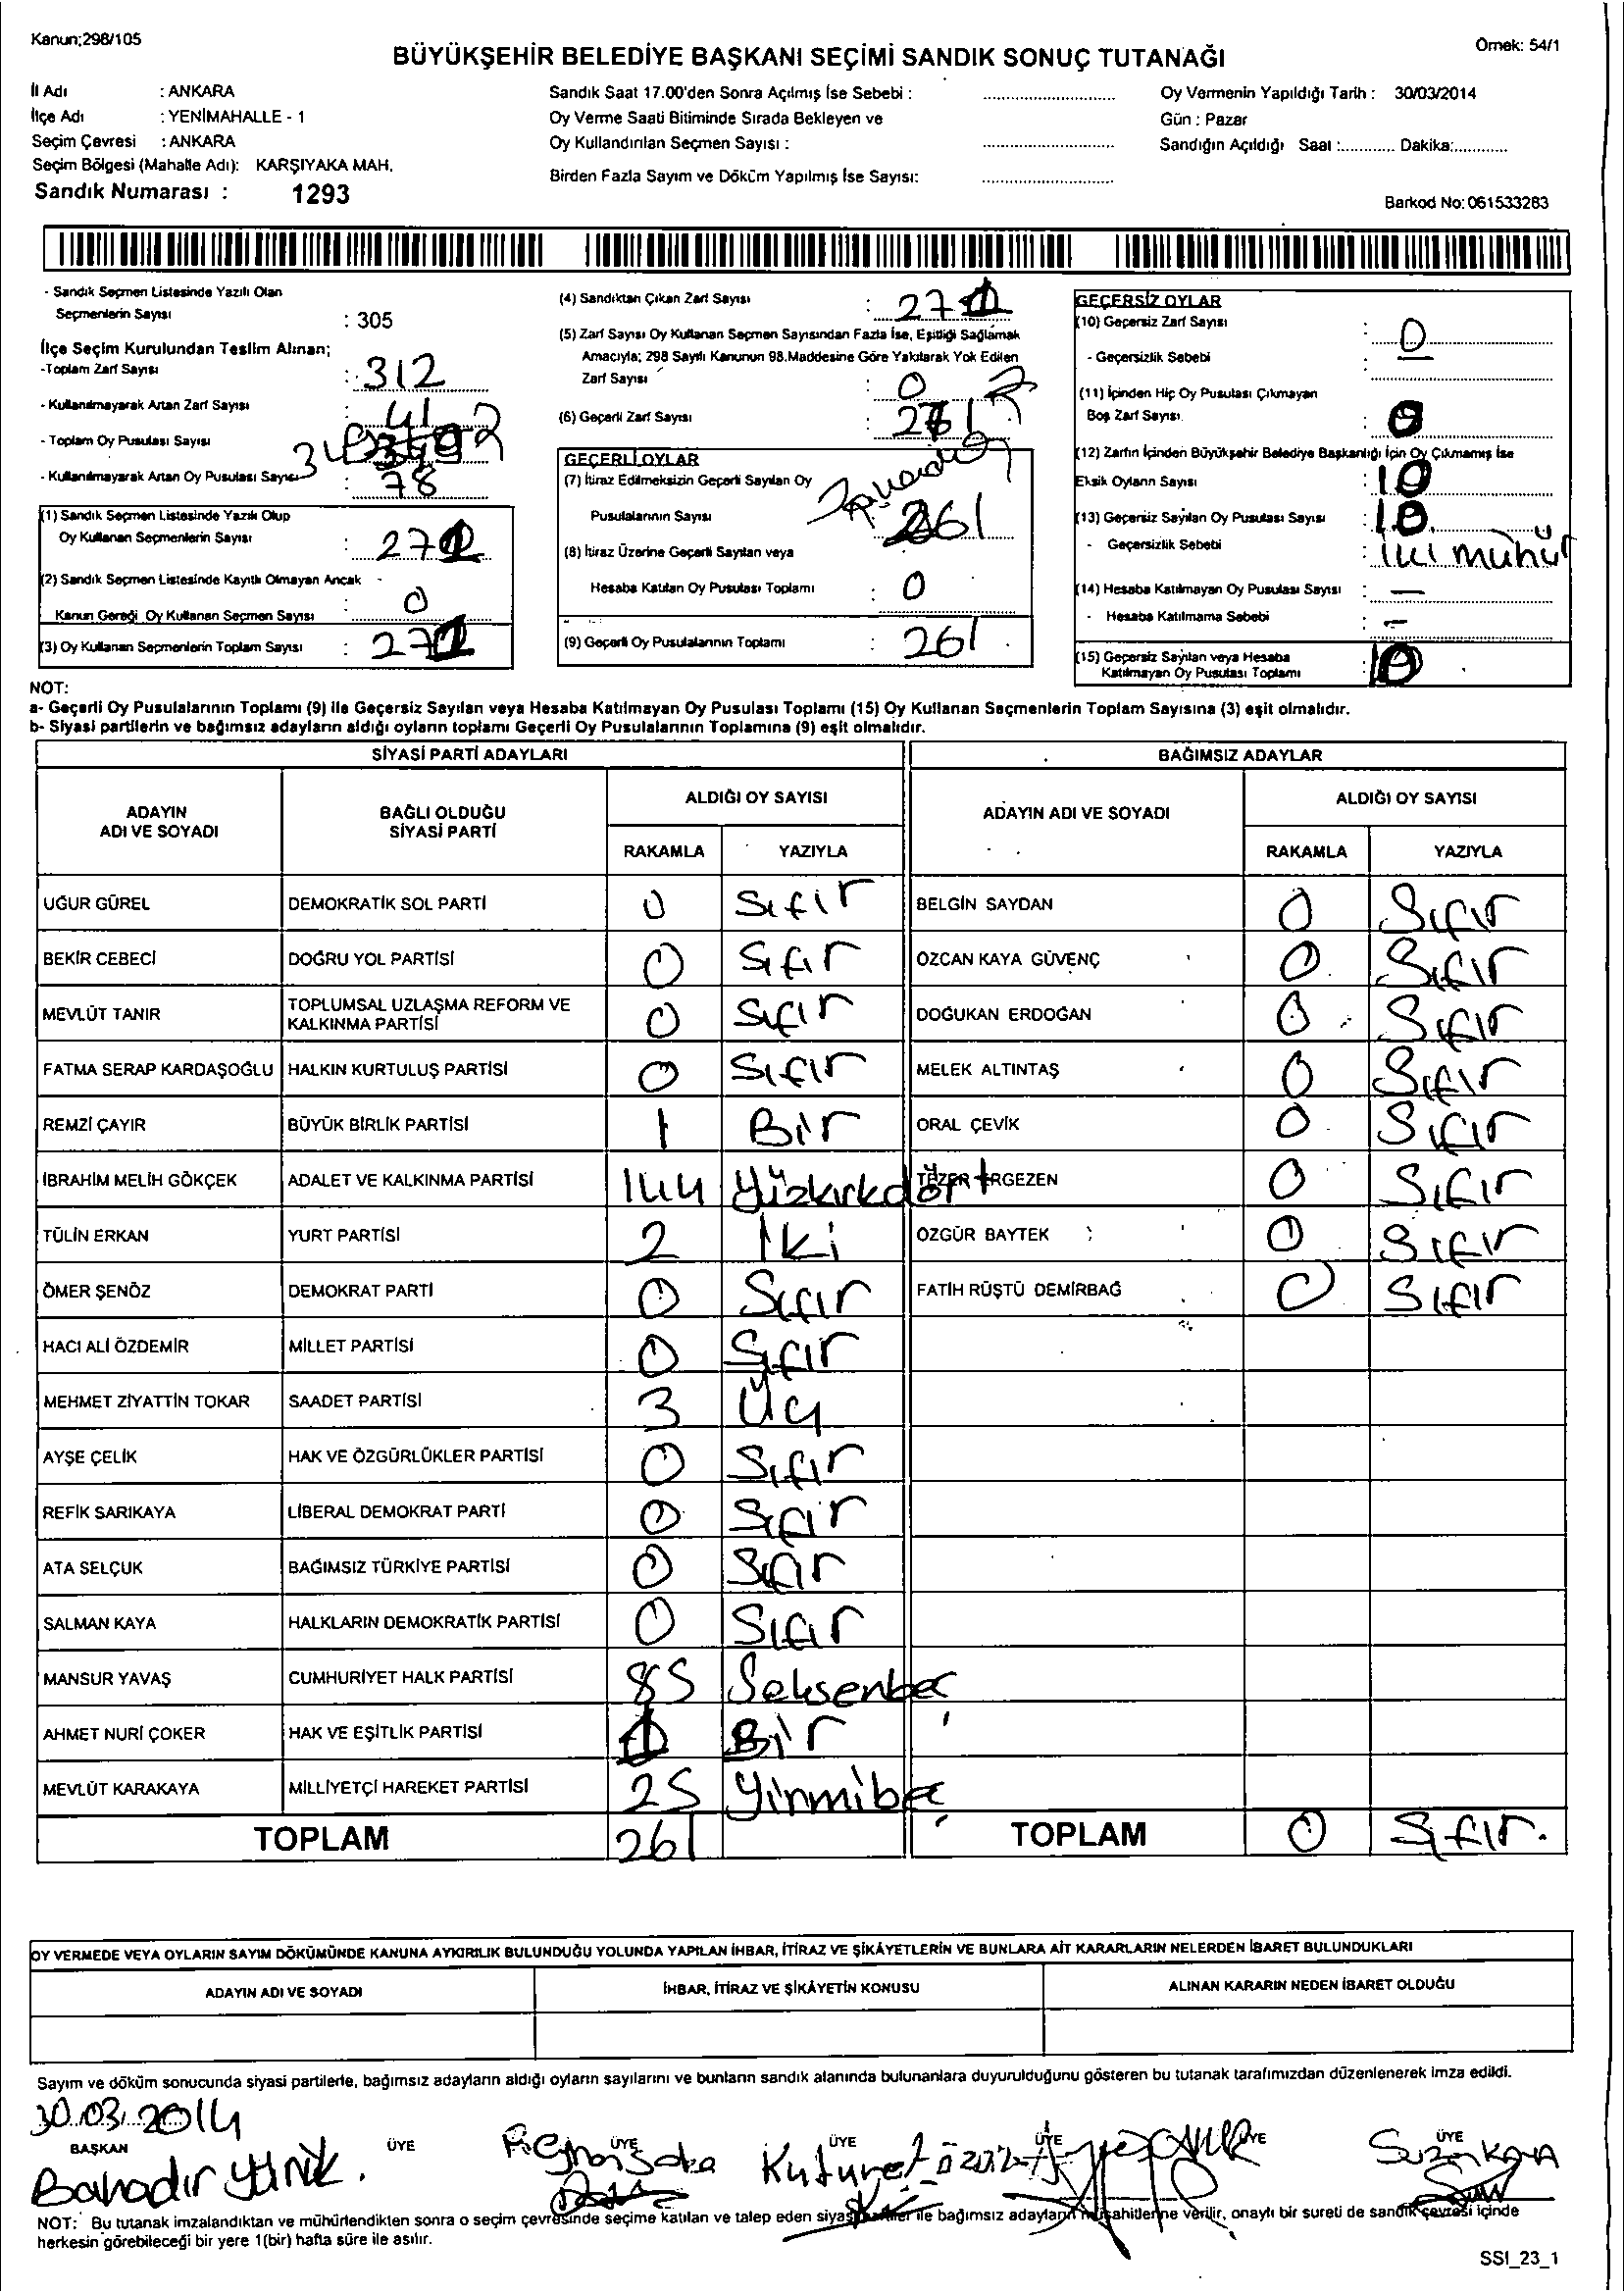 Kanun;298/105
Örnek: 54/1
BÜYÜKŞEHİR BELEDİYE BAŞKANI SEÇİMİ SANDIK SONUÇ TUTANAĞI
İl Adı : ANKARA
İlçe Adı : YENİMAHALLE - 1
Seçim Çevresi : ANKARA
Seçim Bölgesi (Mahalle Adı): KARŞIYAKA MAH.
Sandık Numarası : 1293
Sandık Saat 17.00'den Sonra Açılmış İse Sebebi :
Oy Verme Saati Bitiminde Sırada Bekleyen ve
Oy Kullandırılan Seçmen Sayısı :
Birden Fazla Sayım ve Döküm Yapılmış İse Sayısı:
Oy Vermenin Yapıldığı Tarih : 30/03/2014
Gün : Pazar
Sandığın Açıldığı Saat :............ Dakika:............
Barkod No: 061533283
- Sandık Seçmen Listesinde Yazılı Olan
Seçmenlerin Sayısı : 305
İlçe Seçim Kurulundan Teslim Alınan;
-Toplam Zarf Sayısı : 312
- Kullanılmayarak Artan Zarf Sayısı : 41
- Toplam Oy Pusulası Sayısı
- Kullanılmayarak Artan Oy Pusulası Sayısı 78
(1) Sandık Seçmen Listesinde Yazılı Olup
Oy Kullanan Seçmenlerin Sayısı :
(2) Sandık Seçmen Listesinde Kayıtlı Olmayan Ancak
Kanun Gereği Oy Kullanan Seçmen Sayısı : 0
(3) Oy Kullanan Seçmenlerin Toplam Sayısı :
(4) Sandıktan Çıkan Zarf Sayısı :
(5) Zarf Sayısı Oy Kullanan Seçmen Sayısından Fazla İse, Eşitliği Sağlamak
Amacıyla; 298 Sayılı Kanunun 98.Maddesine Göre Yakılarak Yok Edilen
Zarf Sayısı : 0
(6) Geçerli Zarf Sayısı :
GEÇERLİ OYLAR
(7) İtiraz Edilmeksizin Geçerli Sayılan Oy
Pusulalarının Sayısı : 261
(8) İtiraz Üzerine Geçerli Sayılan veya
Hesaba Katılan Oy Pusulası Toplamı : 0
(9) Geçerli Oy Pusulalarının Toplamı : 261
GEÇERSİZ OYLAR
(10) Geçersiz Zarf Sayısı : 0
- Geçersizlik Sebebi : —
(11) İçinden Hiç Oy Pusulası Çıkmayan
Boş Zarf Sayısı : 0
(12) Zarfın İçinden Büyükşehir Belediye Başkanlığı İçin Oy Çıkmamış İse
Eksik Oyların Sayısı : 10
(13) Geçersiz Sayılan Oy Pusulası Sayısı : 10
- Geçersizlik Sebebi : iki mühür
(14) Hesaba Katılmayan Oy Pusulası Sayısı : —
- Hesaba Katılmama Sebebi : —
(15) Geçersiz Sayılan veya Hesaba
Katılmayan Oy Pusulası Toplamı : 10
NOT:
a- Geçerli Oy Pusulalarının Toplamı (9) ile Geçersiz Sayılan veya Hesaba Katılmayan Oy Pusulası Toplamı (15) Oy Kullanan Seçmenlerin Toplam Sayısına (3) eşit olmalıdır.
b- Siyasi partilerin ve bağımsız adayların aldığı oyların toplamı Geçerli Oy Pusulalarının Toplamına (9) eşit olmalıdır.
SİYASİ PARTİ ADAYLARI BAĞIMSIZ ADAYLAR
ADAYIN ADI VE SOYADI BAĞLI OLDUĞU SİYASİ PARTİ ALDIĞI OY SAYISI ADAYIN ADI VE SOYADI ALDIĞI OY SAYISI
RAKAMLA YAZIYLA RAKAMLA YAZIYLA
UĞUR GÜREL DEMOKRATİK SOL PARTİ 0 Sıfır BELGİN SAYDAN 0 Sıfır
BEKİR CEBECİ DOĞRU YOL PARTİSİ 0 Sıfır ÖZCAN KAYA GÜVENÇ 0 Sıfır
MEVLÜT TANIR TOPLUMSAL UZLAŞMA REFORM VE KALKINMA PARTİSİ 0 Sıfır DOĞUKAN ERDOĞAN 0 Sıfır
FATMA SERAP KARDAŞOĞLU HALKIN KURTULUŞ PARTİSİ 0 Sıfır MELEK ALTINTAŞ 0 Sıfır
REMZİ ÇAYIR BÜYÜK BİRLİK PARTİSİ 1 Bir ORAL ÇEVİK 0 Sıfır
İBRAHİM MELİH GÖKÇEK ADALET VE KALKINMA PARTİSİ 144 Yüzkırkdört TEZER ERGEZEN 0 Sıfır
TÜLİN ERKAN YURT PARTİSİ 2 İki ÖZGÜR BAYTEK 0 Sıfır
ÖMER ŞENÖZ DEMOKRAT PARTİ 0 Sıfır FATİH RÜŞTÜ DEMİRBAĞ 0 Sıfır
HACI ALİ ÖZDEMİR MİLLET PARTİSİ 0 Sıfır
MEHMET ZİYATTİN TOKAR SAADET PARTİSİ 3 Üç
AYŞE ÇELİK HAK VE ÖZGÜRLÜKLER PARTİSİ 0 Sıfır
REFİK SARIKAYA LİBERAL DEMOKRAT PARTİ 0 Sıfır
ATA SELÇUK BAĞIMSIZ TÜRKİYE PARTİSİ 0 Sıfır
SALMAN KAYA HALKLARIN DEMOKRATİK PARTİSİ 0 Sıfır
MANSUR YAVAŞ CUMHURİYET HALK PARTİSİ 85 Seksenbeş
AHMET NURİ ÇOKER HAK VE EŞİTLİK PARTİSİ 1 Bir
MEVLÜT KARAKAYA MİLLİYETÇİ HAREKET PARTİSİ 25 Yirmibeş
TOPLAM 261 TOPLAM 0 Sıfır.
OY VERMEDE VEYA OYLARIN SAYIM DÖKÜMÜNDE KANUNA AYKIRILIK BULUNDUĞU YOLUNDA YAPILAN İHBAR, İTİRAZ VE ŞİKÂYETLERİN VE BUNLARA AİT KARARLARIN NELERDEN İBARET BULUNDUKLARI
ADAYIN ADI VE SOYADI İHBAR, İTİRAZ VE ŞİKÂYETİN KONUSU ALINAN KARARIN NEDEN İBARET OLDUĞU
Sayım ve döküm sonucunda siyasi partilerle, bağımsız adayların aldığı oyların sayılarını ve bunların sandık alanında bulunanlara duyurulduğunu gösteren bu tutanak tarafımızdan düzenlenerek imza edildi.
30.03.2014
BAŞKAN ÜYE ÜYE ÜYE ÜYE ÜYE ÜYE
Bahadır
NOT: Bu tutanak imzalandıktan ve mühürlendikten sonra o seçim çevresinde seçime katılan ve talep eden siyasi partiler ile bağımsız adayların müşahitlerine verilir, onaylı bir sureti de sandık çevresi içinde
herkesin görebileceği bir yere 1(bir) hafta süre ile asılır.
SSI_23_1